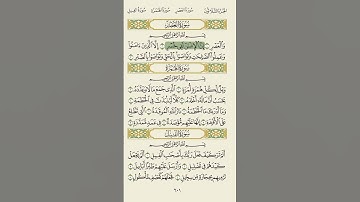 الجزء الثلاثون سورة العصر سورة الهمزة سورة الفيل
سُورَةُ العَصْرِ
بِسْمِ اللَّهِ الرَّحْمَٰنِ الرَّحِيمِ
وَالْعَصْرِ ١ إِنَّ الْإِنسَانَ لَفِي خُسْرٍ ٢ إِلَّا الَّذِينَ ءَامَنُوا
وَعَمِلُوا الصَّالِحَاتِ وَتَوَاصَوْا بِالْحَقِّ وَتَوَاصَوْا بِالصَّبْرِ ٣
سُورَةُ الهُمَزَةِ
بِسْمِ اللَّهِ الرَّحْمَٰنِ الرَّحِيمِ
وَيْلٌ لِّكُلِّ هُمَزَةٍ لُّمَزَةٍ ١ الَّذِي جَمَعَ مَالًا وَعَدَّدَهُ ٢
يَحْسَبُ أَنَّ مَالَهُ أَخْلَدَهُ ٣ كَلَّا لَيُنبَذَنَّ فِي الْحُطَمَةِ ٤
وَمَا أَدْرَاكَ مَا الْحُطَمَةُ ٥ نَارُ اللَّهِ الْمُوقَدَةُ ٦ الَّتِي تَطَّلِعُ
عَلَى الْأَفْئِدَةِ ٧ إِنَّهَا عَلَيْهِم مُّؤْصَدَةٌ ٨ فِي عَمَدٍ مُّمَدَّدَةٍ ٩
سُورَةُ الفِيلِ
بِسْمِ اللَّهِ الرَّحْمَٰنِ الرَّحِيمِ
أَلَمْ تَرَ كَيْفَ فَعَلَ رَبُّكَ بِأَصْحَابِ الْفِيلِ ١ أَلَمْ يَجْعَلْ
كَيْدَهُمْ فِي تَضْلِيلٍ ٢ وَأَرْسَلَ عَلَيْهِمْ طَيْرًا أَبَابِيلَ ٣
تَرْمِيهِم بِحِجَارَةٍ مِّن سِجِّيلٍ ٤ فَجَعَلَهُمْ كَعَصْفٍ مَّأْكُولٍ ٥
٦٠١